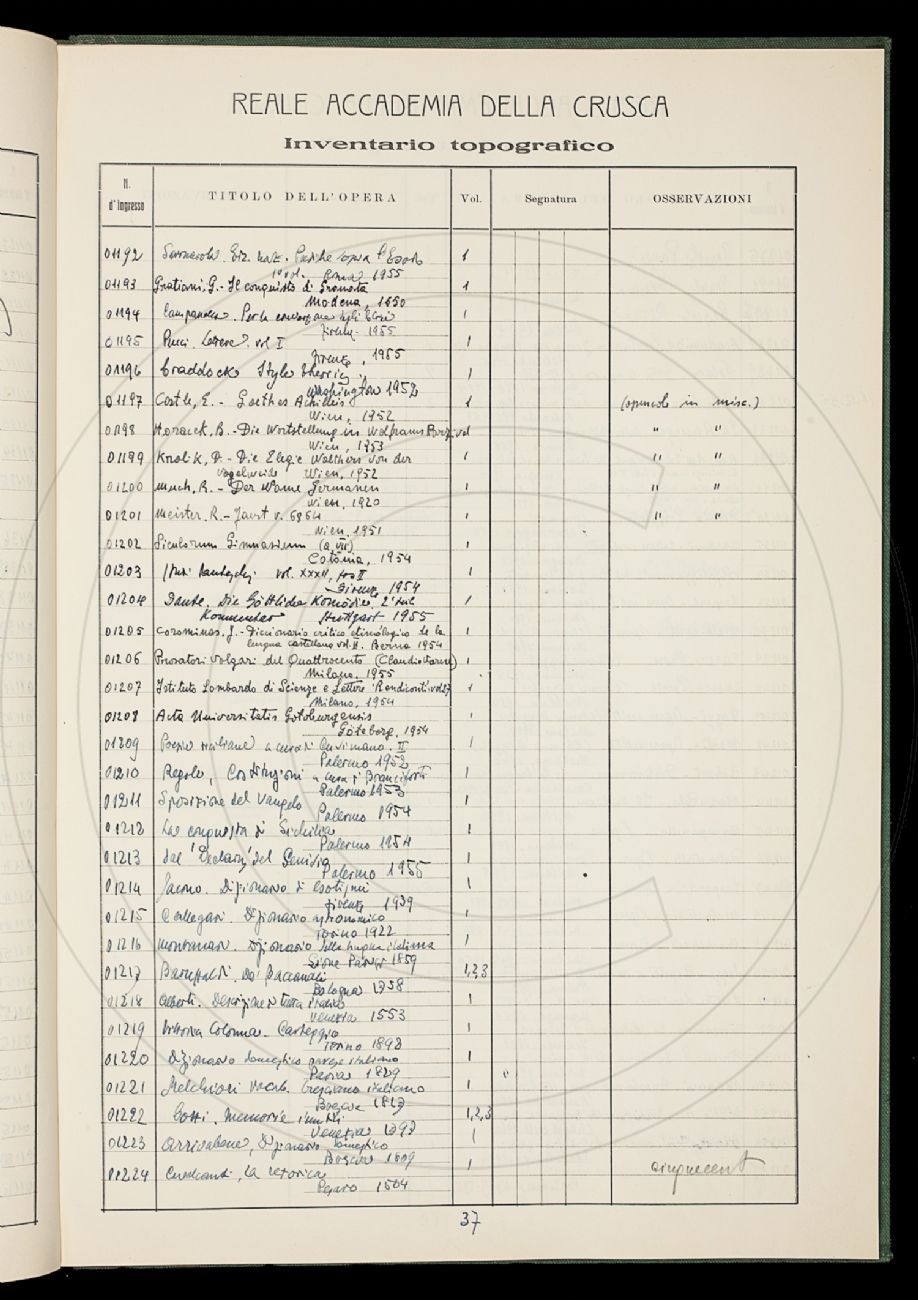 REALE ACCADEMIA DELLA CRUSCA
Inventario topografico
N. d'Ingresso TITOLO DELL'OPERA Vol. Segnatura OSSERVAZIONI
01192 Savonarola. Ediz. naz. Prediche sopra l'Esodo 1
1° vol. Roma 1955
01193 Gratiani, G. - Il conquisto di Granata 1
Modena, 1650
01194 Campanella. Per la conversione degli Ebrei 1
Firenze - 1955
01195 Pucci. Lettere. vol I 1
Firenze, 1955
01196 Craddock Style 1
Washington 1952
01197 Castle, E. - Goethes Achilleis 1 (opuscolo in misc.)
Wien, 1952
01198 Horacek, B. - Die Wortstellung in Wolframs Parzival " "
Wien, 1953
01199 Kralik, D. - Die Elegie Walthers von der 1 " "
Vogelweide Wien, 1952
01200 Much, R. - Der Name Germanen 1 " "
Wien, 1920
01201 Meister, R. - Faust v. 6964 1 " "
Wien, 1951
01202 Siculorum Gimnasium (a. VII) 1
Catania, 1954
01203 Studi Danteschi vol. XXXII, fasc II 1
Firenze 1954
01204 Dante. Die Göttliche Komödie. 2 Teil 1
Kommentar Stuttgart 1955
01205 Corominas, J. - Diccionario critico etimologico de la 1
lengua castellana vol. II. Berna 1954
01206 Prosatori volgari del Quattrocento (Claudio Varese) 1
Milano, 1955
01207 Istituto Lombardo di Scienze e Lettere "Rendiconti" vol 87 1
Milano, 1954
01208 Acta Universitatis Gotoburgensis 1
Göteborg, 1954
01209 Poesie siciliane a cura di Cusimano. II 1
Palermo 1952
01210 Regole, Costituzioni a cura di Branciforti 1
Palermo 1953
01211 Sposizione del Vangelo 1
Palermo 1954
01212 La conquista di Sichilia 1
Palermo 1954
01213 Dal "Declarus" del Senisio 1
Palermo 1955
01214 Jacono. Dizionario di esotismi 1
Firenze 1939
01215 Callegari. Dizionario astronomico 1
Torino 1922
01216 Montanari. Dizionario della lingua italiana 1
1859
01217 Baruffaldi. De' Baccanali 1,2,3
Bologna 1758
01218 Alberti. Descrizione di tutta Italia 1
Venezia 1553
01219 Vittoria Colonna. Carteggio 1
Torino 1892
01220 Dizionario domestico pavese italiano 1
Pavia 1829
01221 Melchiori Vocab. bresciano italiano 1
Brescia 1817
01222 Gozzi. Memorie inutili 1,2,3
Venezia 1797
01223 Arrivabene, Dizionario domestico 1
Brescia 1809
01224 Cavalcanti, La retorica 1 cinquecent
Pesaro 1564
37